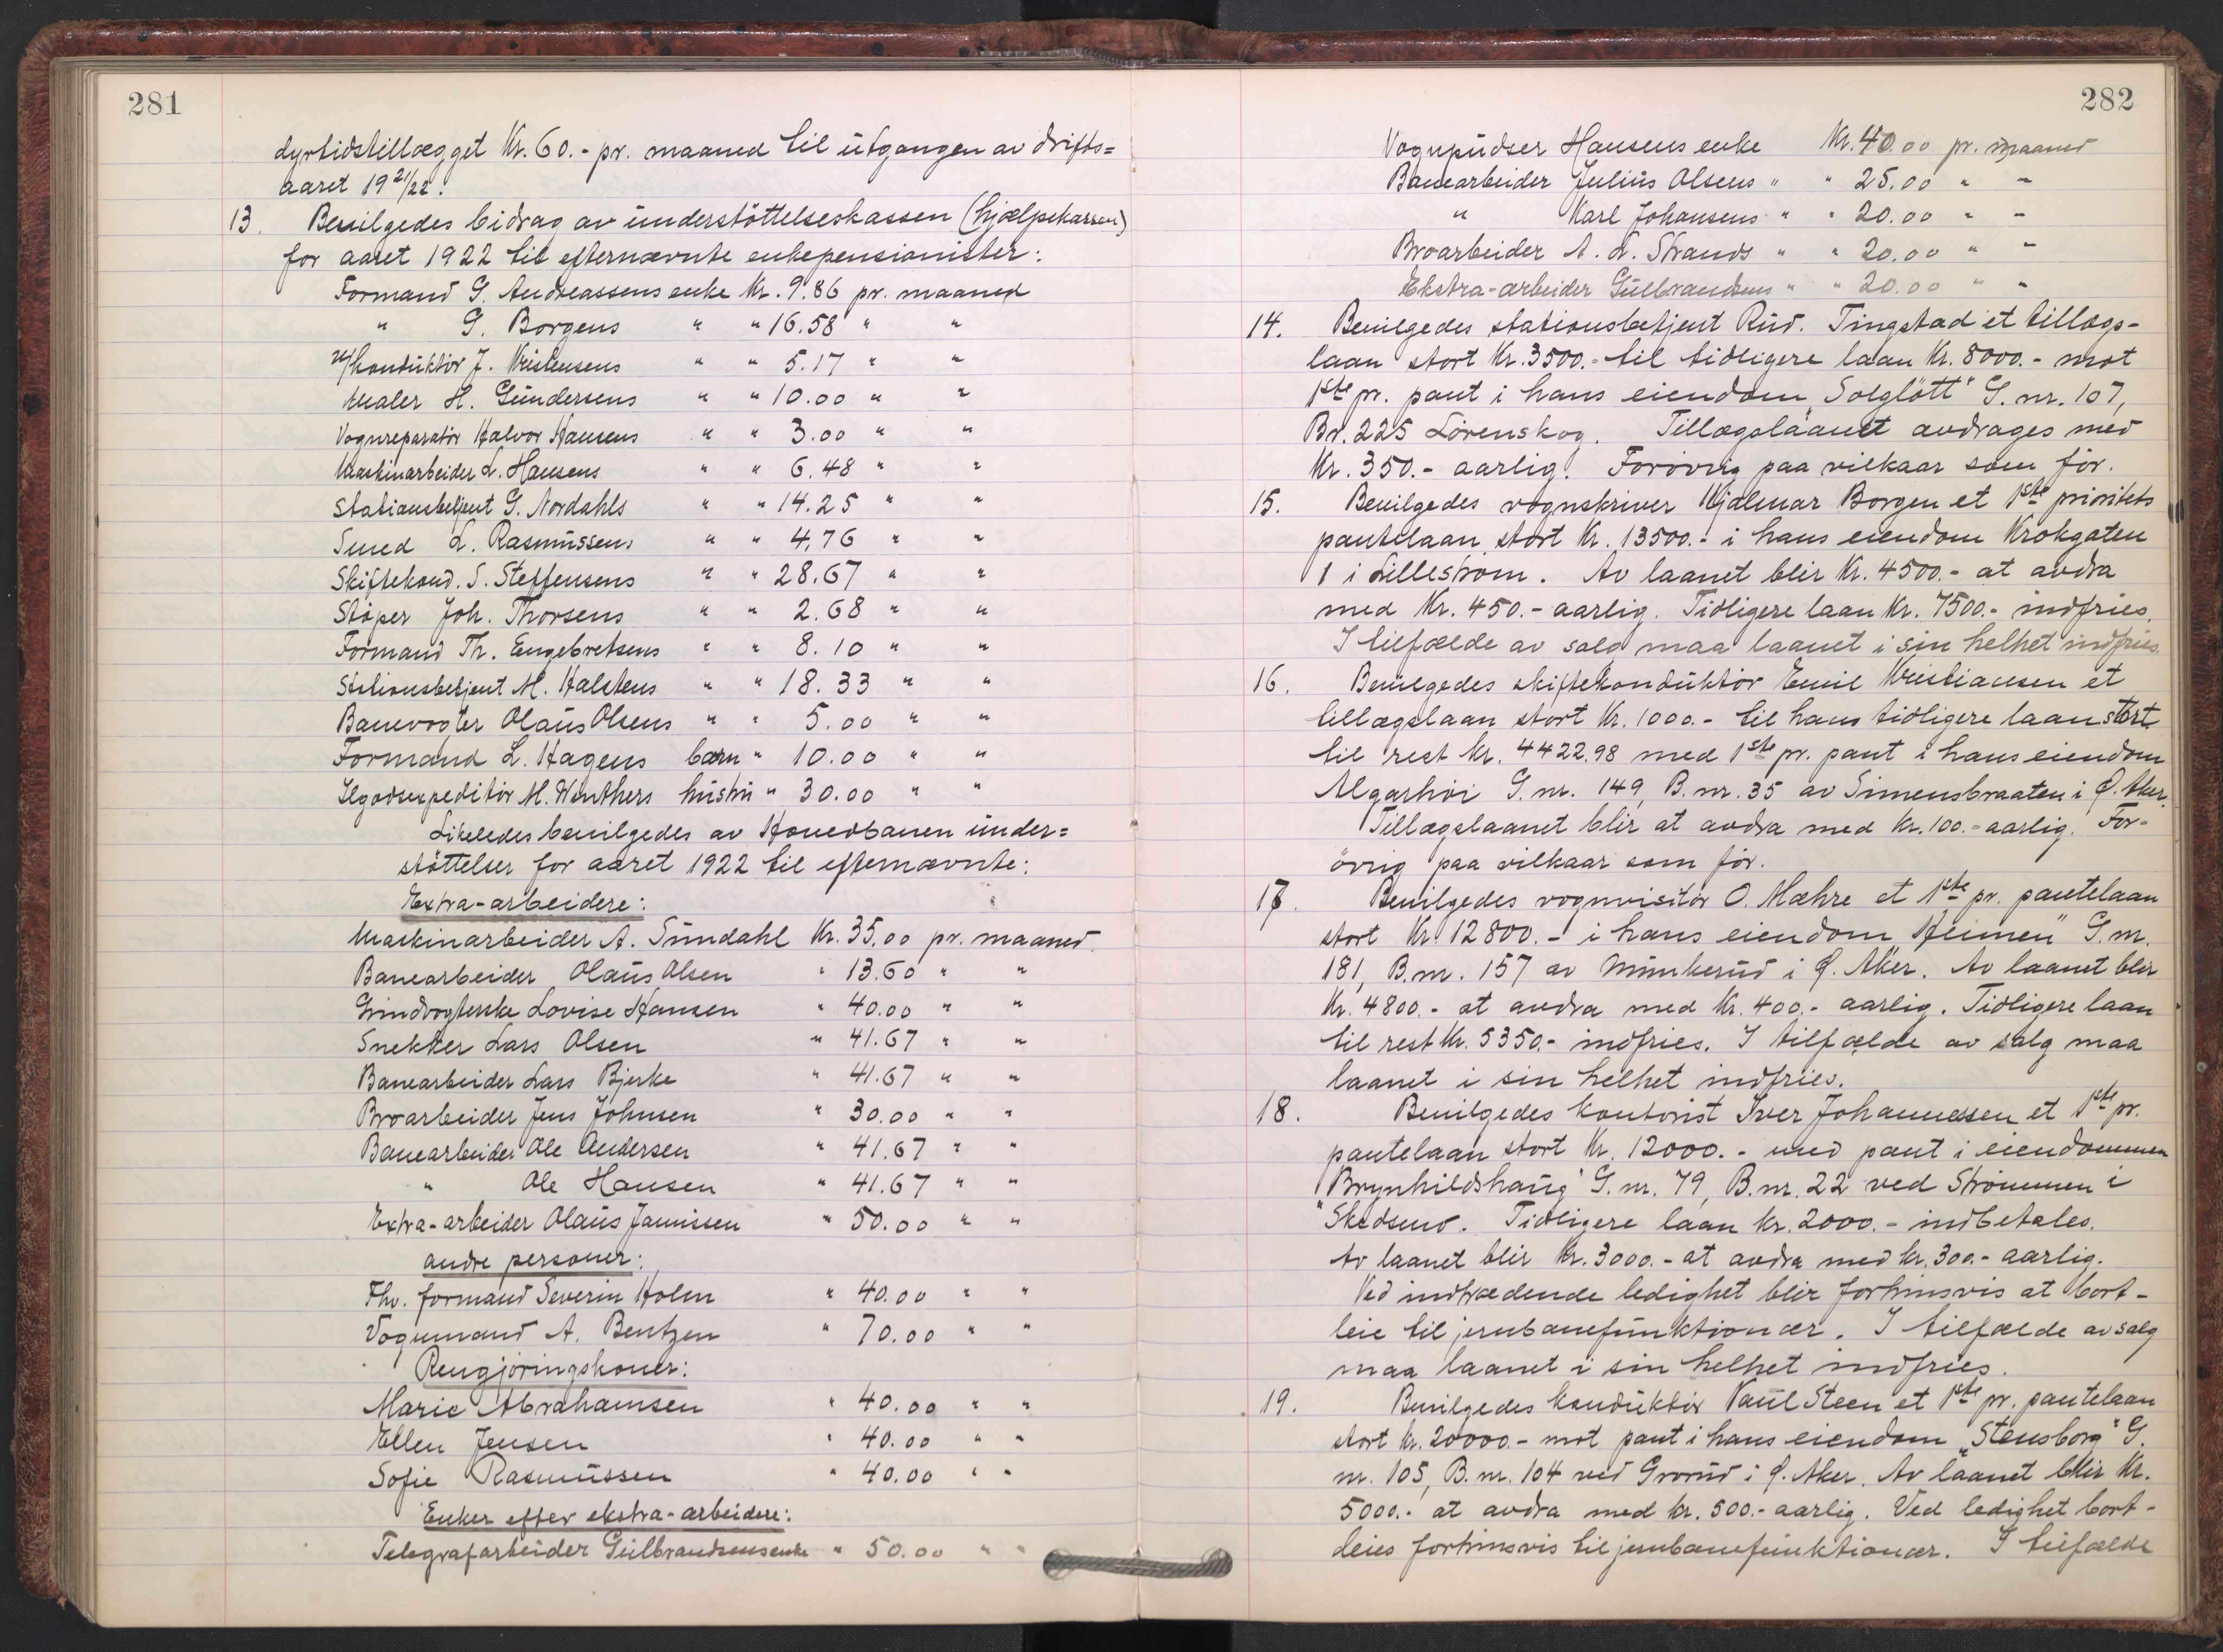 281
dyrtidstillægget Kr. 60.- pr. maaned til utgangen av drifts=
aaret 19 21/22.
13. Bevilgedes bidrag av understöttelseskassen (hjælpekassen)
for aaret 1922 til efternævnte enkepensionister:
Formand G. Andreassens enke Kr. 9.86 pr. maaned
" G. Borgens " " 16.58 " "
konduktör J. Kristensens " " 5.17 " "
Maler H. Gundersens " " 10.00 " "
Vognreparatör Halvor Hansens " " 3.00 " "
Maskinarbeider L. Hansens " " 6.48 " "
Stationsbetjent G. Nordahls " " 14.25 " "
Smed L. Rasmussens " " 4.76 " "
Skiftekond. S. Steffensens " " 28.67 " "
Støper Joh. Thorsens " " 2.68 " "
Formand Th. Engebretsens " " 8.10 " "
Stationsbetjent M. Halstens " " 18.33 " "
Banevogter Olaus Olsens " " 5.00 " "
Formand L. Hagens barn " 10.00 " "
Ilgodsexpeditör M. Winthers hustru " 30.00 " "
Likeledes bevilgedes av Hovedbanen under=
støttelser for aaret 1922 til efternævnte:
Extra-arbeidere:
Maskinarbeider A. Sundahl Kr. 35.00 pr. maaned.
Banearbeider Olaus Olsen " 13.60 " "
Grindvogterske Lovise Hansen " 40.00 " "
Snekker Lars Olsen " 41.67 " "
Banearbeider Lars Bjerke " 41.67 " "
Broarbeider Jens Johnsen " 30.00 " "
Banearbeider Ole Andersen " 41.67 " "
" Ole Hansen " 41.67 " "
Extra-arbeider Olaus Jamissen " 50.00 " "
andre personer:
Fhv. formand Severin Holm " 40.00 " "
Vognmand A. Bentzen " 70.00 " "
Rengjøringskoner:
Marie Abrahamsen " 40.00 " "
Ellen Jensen " 40.00 " "
Sofie Rasmussen " 40.00 " "
Enker efter ekstra-arbeidere:
Telegrafarbeider Gulbrandsens enke " 50.00 " "
282
Vognpudser Hansens enke Kr. 40.00 pr. maaned
Banearbeider Julius Olsens " " 25.00 " "
" Karl Johansens " " 20.00 " "
Broarbeider A. L. Strands " " 20.00 " "
Ekstra-arbeider Gulbrandsens " " 20.00 " "
14. Bevilgedes stationsbetjent Rud. Tingstad et tillægs-
laan stort Kr. 3500.- til tidligere laan Kr. 8000.- mot
1ste pr. pant i hans eiendom "Solglött" G. nr. 107,
Br. 225 Lörenskog. Tillægslaanet avdrages med
Kr. 350.- aarlig. Forövrig paa vilkaar som för.
15. Bevilgedes vognskriver Hjalmar Borgen et 1ste prioritets
pantelaan stort Kr. 13500.- i hans eiendom Krokgaten
1 i Lillestrøm. Av laanet blir Kr. 4500.- at avdra
med Kr. 450.- aarlig. Tidligere laan Kr. 7500.- indfries.
I tilfælde av salg maa laanet i sin helhet indfries.
16. Bevilgedes skiftekonduktör Emil Kristiansen et
tillægslaan stort Kr. 1000.- til hans tidligere laan stort
til rest Kr. 4422.98 med 1ste pr. pant i hans eiendom
Algarhöi G. nr. 149, B. nr. 35 av Simensbraaten i Ø. Aker.
Tillægslaanet blir at avdra med Kr. 100.- aarlig. For-
övrig paa vilkaar som för.
17. Bevilgedes vognvisitör O. Mæhre et 1ste pr. pantelaan
stort Kr. 12800.- i hans eiendom "Heimen" G. nr.
181, B. nr. 157 av Munkerud i Ø. Aker. Av laanet blir
Kr. 4800.- at avdra med Kr. 400.- aarlig. Tidligere laan
til rest Kr. 5350.- indfries. I tilfælde av salg maa
laanet i sin helhet indfries.
18. Bevilgedes kontorist Iver Johannessen et 1ste pr.
pantelaan stort Kr. 12000.- med pant i eiendommen
"Brynhildshaug" G. nr. 79, B. nr. 22 ved Strømmen i
Skedsmo. Tidligere laan Kr. 2000.- indbetales.
Av laanet blir Kr. 3000.- at avdra med kr. 300.- aarlig.
Ved indtrædende ledighet blir fortrinsvis at bort-
leie til jernbanefunktionær. I tilfælde av salg
maa laanet i sin helhet indfries.
19. Bevilgedes konduktör Paul Steen et 1ste pr. pantelaan
stort kr. 20000.- mot pant i hans eiendom "Stensborg" G.
nr. 105, B. nr. 104 ved Grorud i Ø. Aker. Av laanet blir Kr.
5000.- at avdra med kr. 500.- aarlig. Ved ledighet bort-
leies fortrinsvis til jernbanefunktionær. I tilfælde